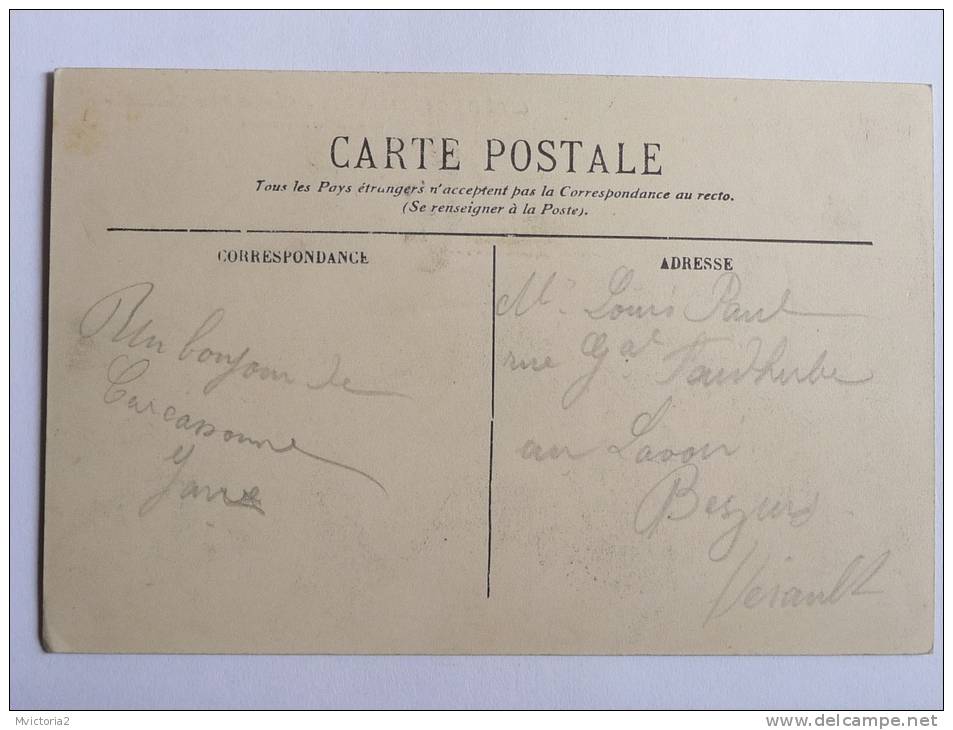 CARTE POSTALE
Tous les Pays étrangers n'acceptent pas la Correspondance au recto.
(Se renseigner à la Poste).
CORRESPONDANCE
Un bonjour de
Carcassonne
ADRESSE
Mr Louis Paul
rue Gal Faidherbe
au Lavoir
Beziers
Herault
Mvictoria2
www.delcampe.net